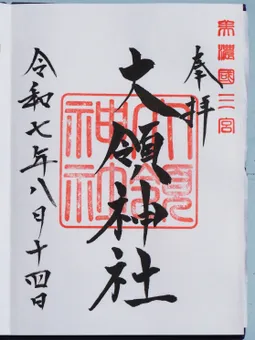 美濃國二宮
奉拝
大領神社
大領神社
令和七年八月十四日